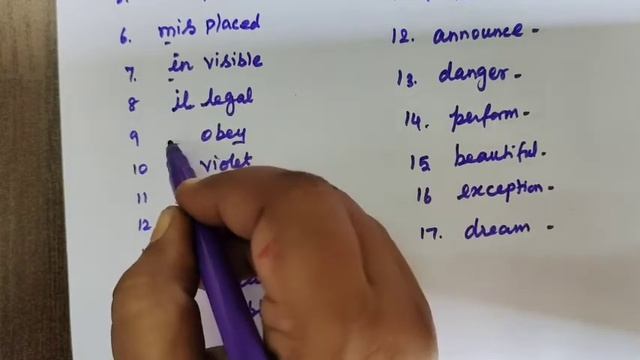 6. mis placed
7. in visible
8 il legal
9 obey
10 violet
11
12
12. announce -
13. danger -
14. perform -
15 beautiful -
16 exception -
17. dream -